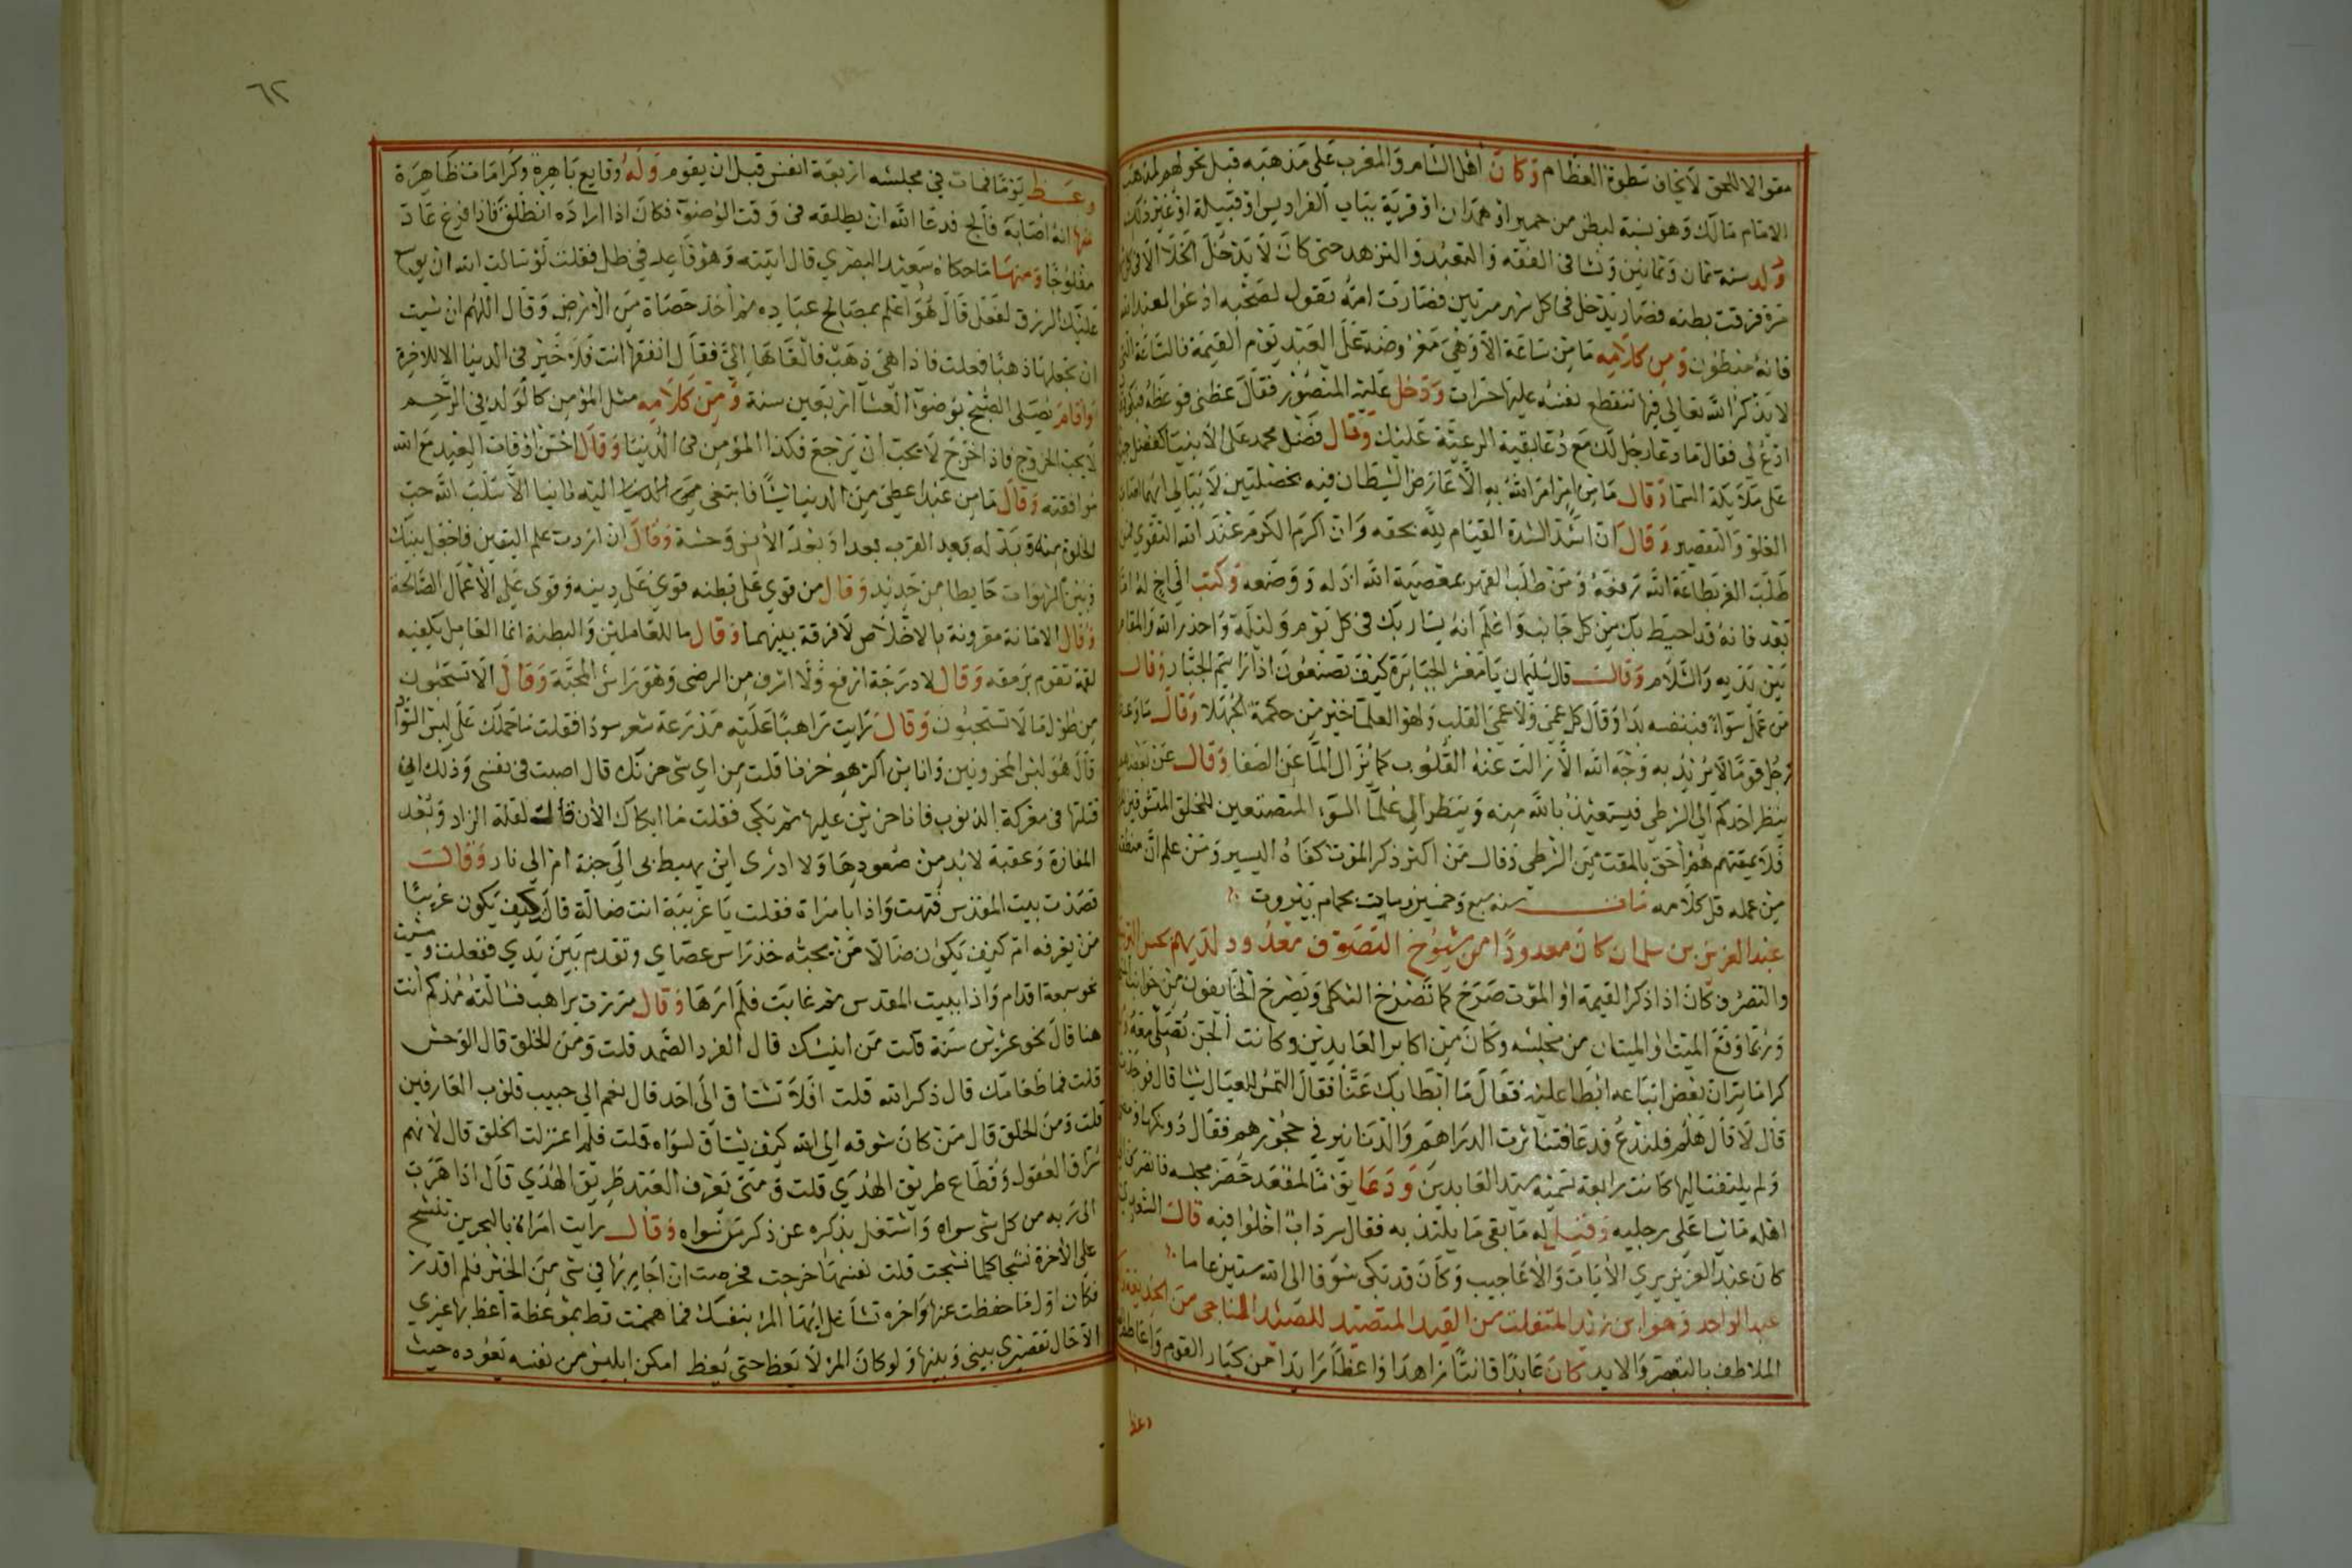 مقوالا للحق لا يخاف سطوة العظام وكان أهل الشام والمغرب على مذهبه قبل تحولهم لمذهب
الامام مالك وهو نسبة لبطن من حمير او همدان او قرية بباب الفراديس او قبيلة او غير ذلك
ولد سنة ثمان وثمانين ونشا في الفقه والتعبد والتزهد حتى كان لا يدخل الخلا الا في كل
مرة فرقت بطنه فصار يدخل في كل شهر مرتين فصارت امه تقول لصحبه ادعوا لعبد الله
فانه مبطون ومن كلامه ما من ساعة الا وهي معروضة على العبد يوم القيمة فالساعة التي
لا يذكر الله تعالى فيها تتقطع نفسه عليها حسرات ودخل عليه المنصور فقال عظني فوعظه
ادع لي فقال ما دعا رجل لك مع دعا بقية الرعية عليك وقال فضل محمد على الانبيا كفضل
على ملائكة السما وقال ما من امر امر الله به الا عارض الشيطان فيه بخصلتين لا يبالي ايهما اصاب
الغلو والتقصير وقال ان اشد الشدة القيام لله بحقه وان اكرم الكرم عند الله التقوى
طلب العز بطاعة الله رفعه ومن طلب القهر بمعصية الله اذله ووضعه وكتب الى اخ له اما
بعد فانه قد احيط بك من كل جانب واعلم انه يسار بك في كل يوم وليلة واحذر الله والمقام
بين يديه والسلام وقال قال سليمان يا معشر الجبابرة كيف تصنعون اذا رايتم الجبار وقال
من عمل سواء فبنفسه بدا وقال كل عمى ولا عمى القلب ولهو العلما خير من حكمة الجهلا وقال ما وعظ
رجل قوما لا يريد به وجه الله الا زالت عنه القلوب كما يزال الما عن الصفا وقال عن بعضهم
ينظر احدكم الى الشرطي فيستعيذ بالله منه وينظر الى علما السوء المتصنعين للخلق المتشوفين
فلا يمقتهم هم احق بالمقت من الشرطي وقال من اكثر ذكر الموت كفاه اليسير ومن علم ان منطقه
من عمله قل كلامه مات سنة سبع وخمسين وماية بحمام بيروت
عبد العزيز بن سلمان كان معدودا من شيوخ التصوف معدود
والتصرف كان اذا ذكر القيمة او الموت صرخ كما تصرخ الثكلى ويصرخ الخايفون من جوانب
وربما وقع الميت او الميتان من مجلسه وكان من اكابر العابدين وكانت الجن تصلي معه
كراماته ان بعض اتباعه ابطا عليه فقال ما ابطا بك عنا فقال التمس للعيال شيا قال فوجدت
قال لا قال هلم فلندع فدعا فتناثرت الدراهم والدنانير في حجورهم فقال دونكها ومضى
ولم يلتفت اليها كانت رابعة تسميه سيد العابدين ودعا يوما لمقعد حضر مجلسه فانصرف الى
اهله ماشيا على رجليه وقيل له ما بقي ما يلتذ به فقال سرداب اخلوا فيه قال
كان عبد العزيز يرى الايات والاعاجيب وكان قد بكى شوقا الى الله ستين عاما
عبد الواحد وهو ابن زيد المتفلت من القيد المتصيد للصيد المناجى من
الملاطف بالتبصر والايد كان عابدا قانتا زاهدا واعظا رابدا من كبار القوم
وعظ
٦٢
وعظ يوما فمات في مجلسه اربعة انفس قبل ان يقوم وله وقايع باهرة وكرامات ظاهرة
منها انه اصابه فالج فدعا الله ان يطلقه في وقت الوضوء فكان اذا اراده انطلق فاذا فرغ عاد
مفلوجا ومنها ما حكاه سعيد البصري قال اتيته وهو قاعد في ظل فقلت لو سالت الله ان يوسع
عليك الرزق لفعل قال هو اعلم بمصالح عباده ثم اخذ حصاة من الارض وقال اللهم ان شيت
ان تجعلها ذهبا فعلت فاذا هي ذهب فالقاها الي فقال انفقها انت فلا خير في الدنيا الا للاخرة
واقام يصلي الصبح بوضوء العشا اربعين سنة ومن كلامه مثل المؤمن كالولد في الرحم
لا يحب الخروج فاذا خرج لا يحب ان يرجع فكذا المؤمن في الدنيا وقال احسن اوقات العبد مع الله
موافقته وقال ما من عبد اعطي من الدنيا شيا فابتغى اليه ثانيا الا سلب الله حب
الخلوة منه وبدله بعد القرب بعدا وبعد الانس وحشة وقال ان اردت علم اليقين فاجعل بينك
وبين الشهوات حايطا من حديد وقال من قوي على بطنه قوي على دينه وقوى على الاعمال الصالحة
وقال الامانة مقرونة بالاخلاص لا فرقة بينهما وقال ما للعاملين والبطنة انما العامل يكفيه
لقمة تقوم برمقه وقال لا درجة ارفع ولا اشرف من الرضى وهو راس المحبة وقال الا تستحيون
من طول ما لا تستحيون وقال رايت راهبا عليه مدرعة شعر سودا فقلت ما حملك على لبس السواد
قال هو لبس المحزونين وانا من اكبرهم حزنا قلت من اي شي حزنك قال اصبت في نفسي وذلك اني
قتلتها في معركة الذنوب فانا حزين عليها ثم بكى فقلت ما ابكاك الان قال لقلة الزاد وبعد
المفازة وعقبة لا بد من صعودها ولا ادرى اين يهبط بي الى جنة ام الى نار وقال
قصدت بيت المقدس فتهت واذا بامراة فقلت يا غريبة انت ضالة قال كيف يكون غريبا
من يعرفه ام كيف يكون ضالا من يحبه خذ راس عصاي وتقدم بين يدي ففعلت وسرت
نحو سبعة اقدام واذا ببيت المقدس ثم غابت فلم ارها وقال مررت براهب فسالته منذ كم انت
هنا قال نحو عشرين سنة قلت من انيسك قال الفرد الصمد قلت ومن الخلق قال الوحش
قلت فما طعامك قال ذكر الله قلت افلا تشتاق الى احد قال نعم الى حبيب قلوب العارفين
قلت ومن الخلق قال من كان شوقه الى الله كيف يشتاق لسواه قلت فلم اعتزلت الخلق قال لانهم
سراق العقول وقطاع طريق الهدى قلت ومتى يعرف العبد طريق الهدى قال اذا هرب
الى ربه من كل شي سواه واشتغل بذكره عن ذكر من سواه وقال رايت امراة بالبحرين تنسج
على الاخرة نسجا كلما نسجت قلت نفسها خرجت فحرصت ان اجاريها في شي من الخير فلم اقدر
فكان اول ما حفظت عنها واخره تشاغل ايها المرء بنفسك فما هممت قط بموعظة اعظ بها غيري
الا حال تقصيري بيني وبينها ولو كان المرء لا يعظ حتى يعظ امكن ابليس من نفسه يقوده حيث